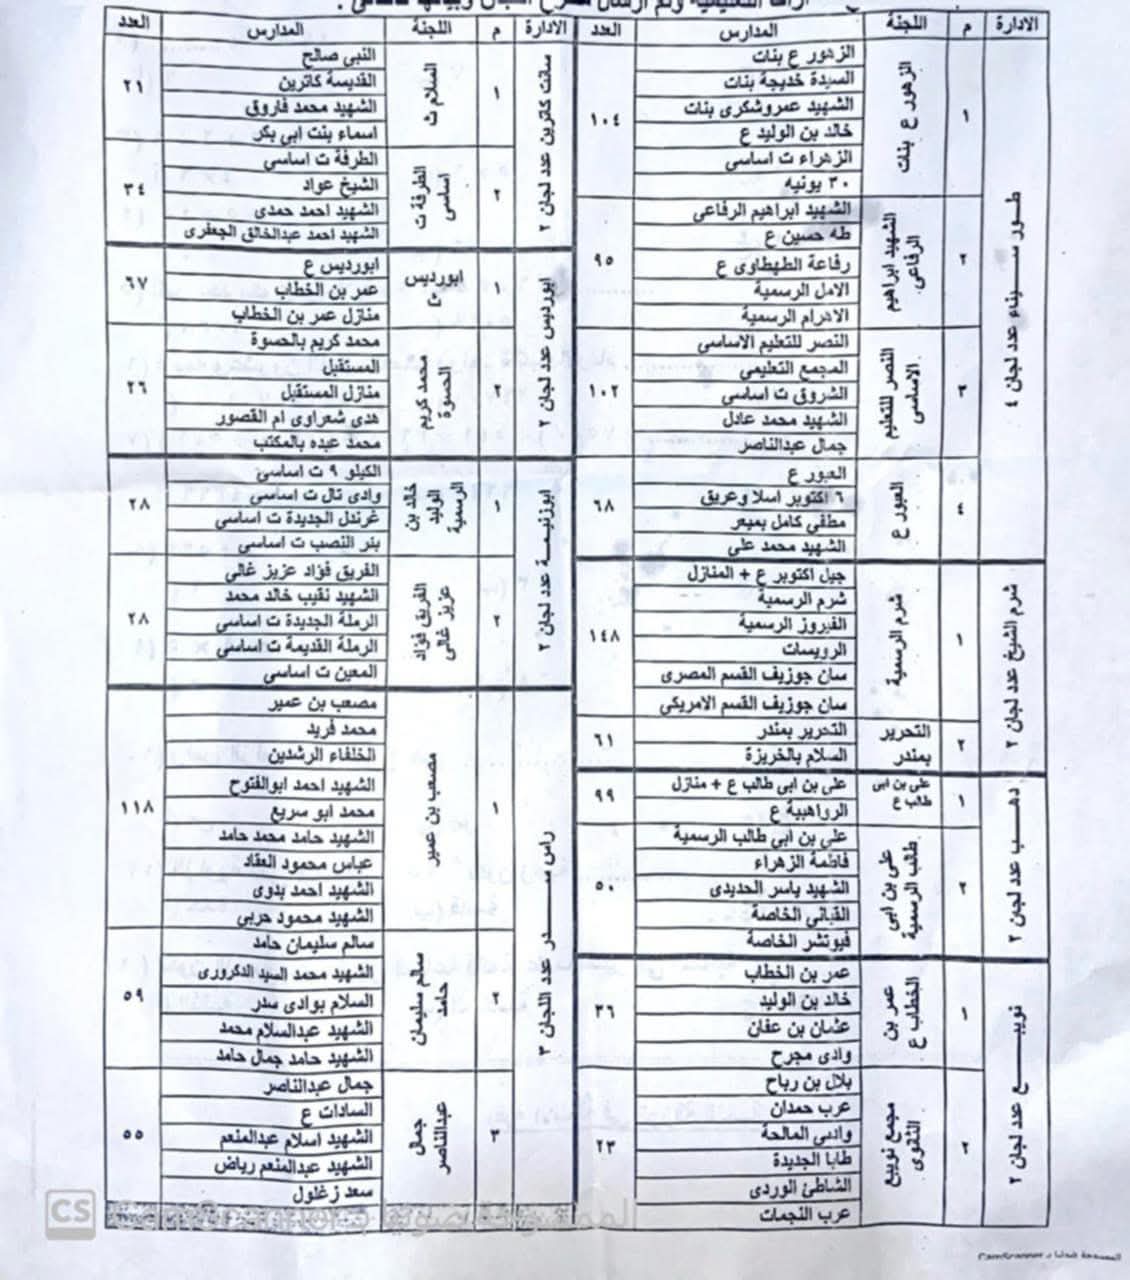 الادارة م اللجنة المدارس العدد
طور سيناء عدد لجان ٤
١ الزهور ع بنات ١٠٤
الزهور ع بنات
السيدة خديجة بنات
الشهيد عمروشكرى بنات
خالد بن الوليد ع
الزهراء ت اساسى
٣٠ يونيه
٢ الشهيد ابراهيم الرفاعى ٩٥
الشهيد ابراهيم الرفاعى
طه حسين ع
رفاعة الطهطاوى ع
الامل الرسمية
الاهرام الرسمية
٣ النصر للتعليم الاساسى ١٠٢
النصر للتعليم الاساسى
المجمع التعليمى
الشروق ت اساسى
الشهيد محمد عادل
جمال عبدالناصر
٤ العبور ع ٦٨
العبور ع
٦ اكتوبر اسلا وعريق
مطفى كامل بميعر
الشهيد محمد على
شرم الشيخ عدد لجان ٢
١ شرم الرسمية ١٤٨
جيل اكتوبر ع + المنازل
شرم الرسمية
الفيروز الرسمية
الرويسات
سان جوزيف القسم المصرى
سان جوزيف القسم الامريكي
٢ التحرير بمندر ٦١
التحرير بمندر
السلام بالخريزة
دهب عدد لجن ٢
١ على بن ابى طالب ع ٩٩
على بن ابى طالب ع + منازل
الرواهبية ع
٢ على بن ابى طالب الرسمية ٥٠
على بن ابى طالب الرسمية
فاطمة الزهراء
الشهيد ياسر الحديدى
القبانى الخاصة
فيوتشر الخاصة
نويبع عدد لجان ٢
١ عمر بن الخطاب ع ٣٦
عمر بن الخطاب
خالد بن الوليد
عشان بن عفان
وادى مجرح
٢ مجمع نويبع الثقوى ٢٣
بلال بن رباح
عرب حمدان
وادى المالحة
طابا الجديدة
الشاطئ الوردى
عرب النجمات
الادارة م اللجنة المدارس العدد
سانت كاترين عدد لجان ٢
١ السلام ث ٢١
النبى صالح
القديسة كاترين
الشهيد محمد فاروق
اسماء بنت ابى بكر
٢ الطرفة ت اساسى ٣٤
الطرفة ت اساسى
الشيخ عواد
الشهيد احمد حمدى
الشهيد احمد عبدالخالق الجعفرى
ابورديس عدد لجان ٢
١ ابورديس ع ٦٧
ابورديس ع
عمر بن الخطاب
منازل عمر بن الخطاب
٢ محمد كريم الحسوة ٢٦
محمد كريم بالحسوة
المستقبل
منازل المستقبل
هدى شعراوى ام القصور
محمد عبده بالمكتب
ابوزنيمة عدد لجان ٢
١ خالد بن الوليد الرسمية ٢٨
الكيلو ٩ ت اساسى
وادى تال ت اساسى
غرندل الجديدة ت اساسى
بئر النصب ت اساسى
٢ الفريق فؤاد عزيز غالى ٢٨
الفريق فؤاد عزيز غالى
الشهيد نقيب خالد محمد
الرملة الجديدة ت اساسى
الرملة القديمة ت اساسى
المعين ت اساسى
راس سدر عدد اللجان ٣
١ مصعب بن عمير ١١٨
مصعب بن عمير
محمد فريد
الخلفاء الرشدين
الشهيد احمد ابوالفتوح
محمد ابو سريع
الشهيد حامد محمد حامد
عباس محمود العقاد
الشهيد احمد بدوى
الشهيد محمود حربى
٢ سالم سليمان حامد ٥٩
سالم سليمان حامد
الشهيد محمد السيد الدكرورى
السلام بوادى سدر
الشهيد عبدالسلام محمد
الشهيد حامد جمال حامد
٣ جمال عبدالناصر ٥٥
جمال عبدالناصر
السادات ع
الشهيد اسلام عبدالمنعم
الشهيد عبدالمنعم رياض
سعد زغلول
CS